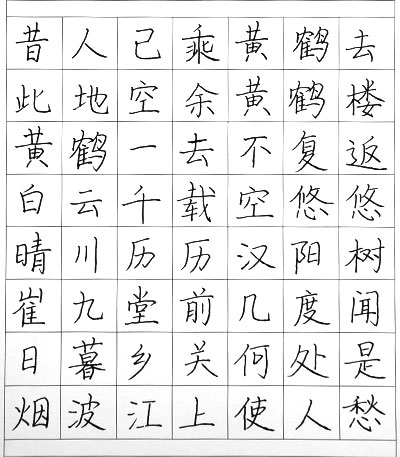 昔人已乘黄鹤去
此地空余黄鹤楼
黄鹤一去不复返
白云千载空悠悠
晴川历历汉阳树
崔九堂前几度闻
日暮乡关何处是
烟波江上使人愁